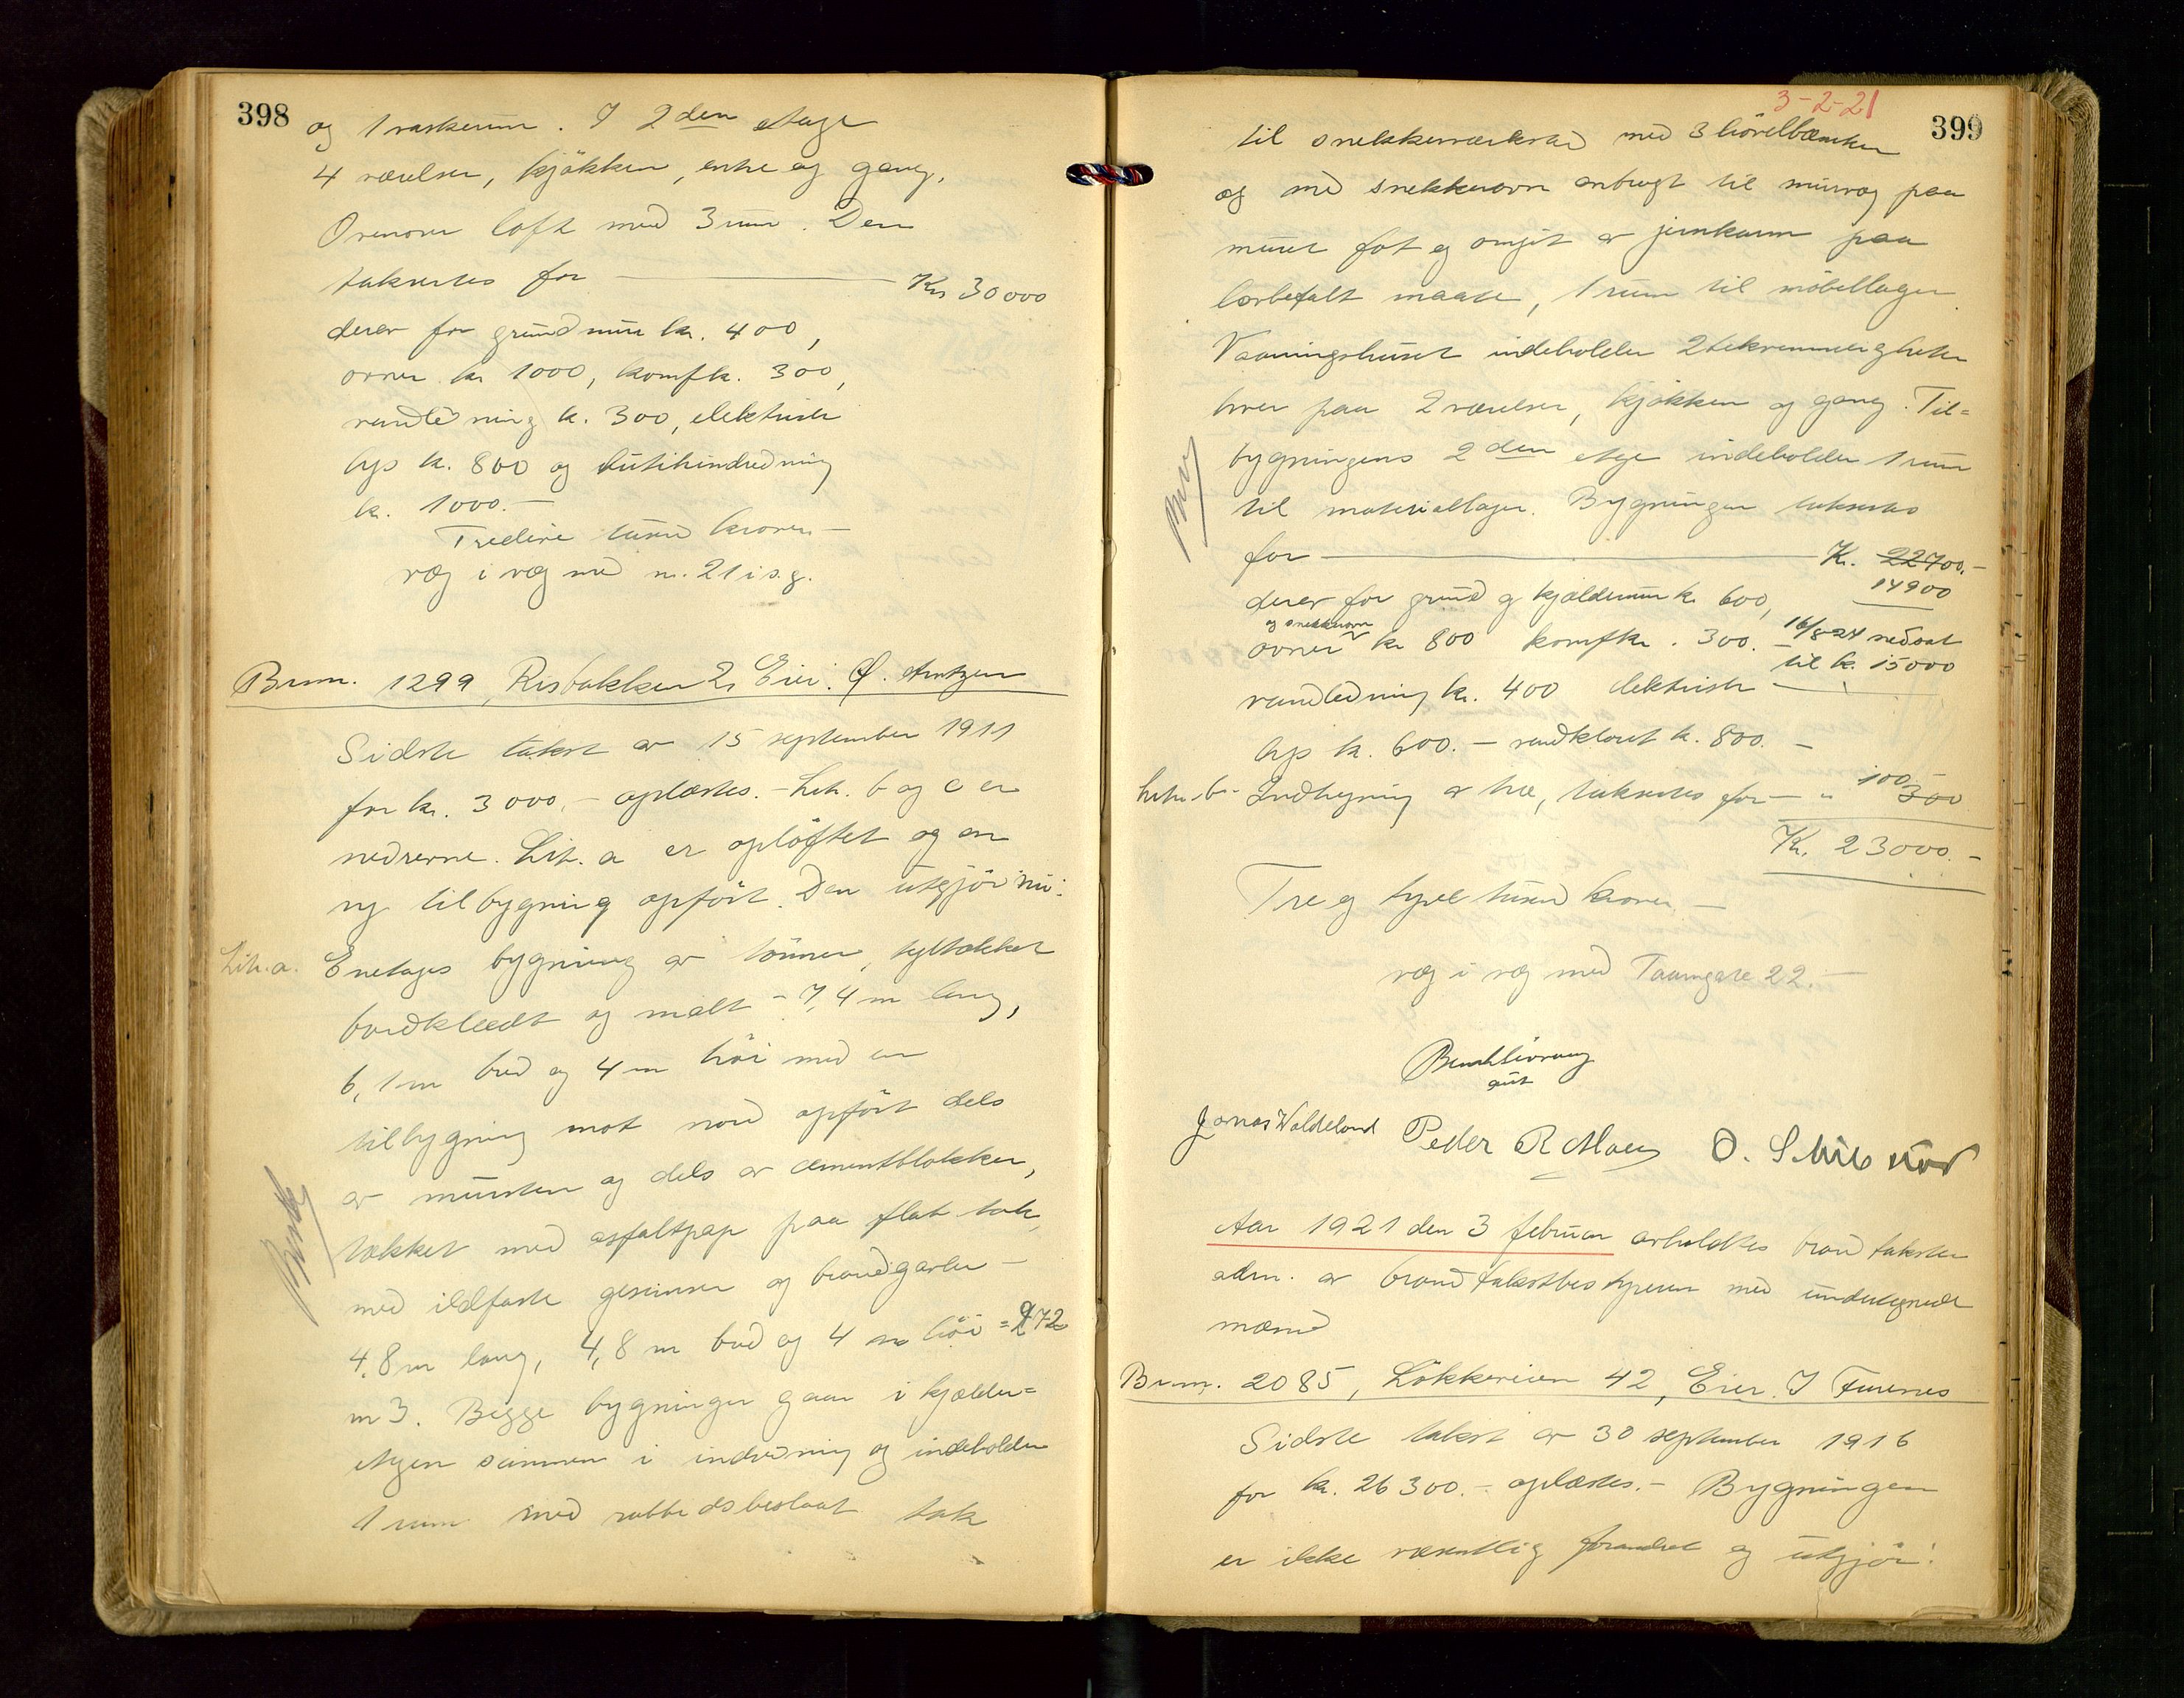 398
og 1 vaskerum. I 2den etage
4 værelser, kjøkken, entre og gang.
Ovenover loft med 3 rum. Den
taksertes for — Kr 30000
derav for grundmur kr. 400,
ovner kr 1000, komf kr. 300,
vandledning kr. 300, elektrisk
lys kr. 800 og butikindredning
kr. 1000.-
Tredive tusen kroner. -
væg i væg med nr. 21 i s. g.
Brnr. 1299, Risbakken 2, Eier: Ø. Arntzen
Sidste takst av 15 september 1911
for kr. 3000.- oplæstes. - Lit. b og c er
nedrevne. Lit. a er opløftet og en
ny tilbygning opført. Den utgjør nu:
Lit. a. Enetages bygning av tømmer, tegltækket
bordklædt og malt - 7,4 m lang,
6,1 m bred og 4 m høi med en
tilbygning mot nord opført dels
av mursten og dels av cementblokker,
tækket med asfaltpap paa flat tak,
med ildfaste gesimser og brandgavler -
4,8 m lang, 4,8 m bred og 4 m høi = 272
m3. Begge bygninger gaar i kjælder=
etagen sammen i indredning og indeholder
1 rum med rabbedsbeslaat tak
3-2-21
399
til snekkerværksted med 3 høvelbænker
og med snekkerovn anbragt til murvæg paa
muret fot og omgit av jernkarm paa
lovbefalt maate, 1 rum til møbellager.
Vaaningshuset indeholder 2 bekvemmeligheter
hver paa 2 værelser, kjøkken og gang. Til=
bygningens 2den etage indeholder 1 rum
til materiallager. Bygningen taksertes
for — Kr. 22700.-
14900
derav for grund og kjældermur kr 600,
og snekkerovn
ovner kr 800 komf kr. 300. -
16/8-24 nedsat
til kr. 15000
vandledning kr. 400 elektrisk
lys kr. 600. - vandkloset kr. 800. -
Lit. b - Indhegning av træ, taksertes for - " 300
100
Kr. 23000.-
Tre og tyve tusen kroner. -
væg i væg med Taamgate 22. -
Jonas Waldeland Peder R Moen
Aar 1921 den 3 februar avholdtes brandtakster
adm. av brandtakstbestyreren med undertegnede
mænd
Brnr. 2085, Løkkeveien 42, Eier. I Furenes
Sidste takst av 30 september 1916
for kr. 26300.- oplæstes. - Bygningen
er ikke væsentlig forandret og utgjør: